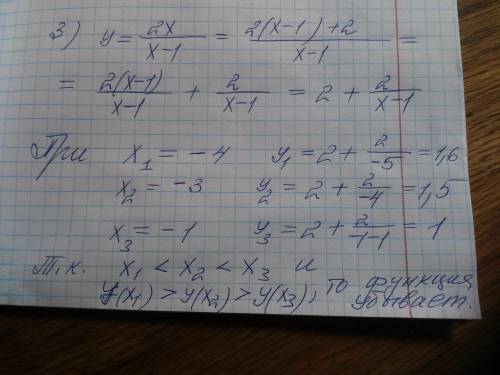 3) y = 2x/(x-1) = (2(x-1)+2)/(x-1) =
= 2(x-1)/(x-1) + 2/(x-1) = 2 + 2/(x-1)
При x₁ = -4 y₁ = 2 + 2/-5 = 1,6
x₂ = -3 y₂ = 2 + 2/-4 = 1,5
x₃ = -1 y₃ = 2 + 2/-1-1 = 1
Т.к. x₁ < x₂ < x₃ и
y(x₁) > y(x₂) > y(x₃), то функция
убывает.